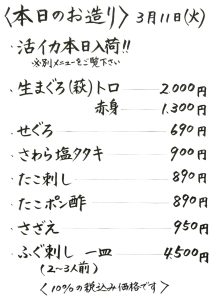 〈本日のお造り〉 3月11日(火)
・活イカ本日入荷!!
※別メニューをご覧下さい
・生まぐろ(萩)トロ 2.000円
赤身 1.300円
・せぐろ 690円
・さわら塩タタキ 900円
・たこ刺し 890円
・たこポン酢 890円
・さざえ 950円
・ふぐ刺し 一皿 4.500円
(2〜3人前)
〈10%の税込み価格です〉